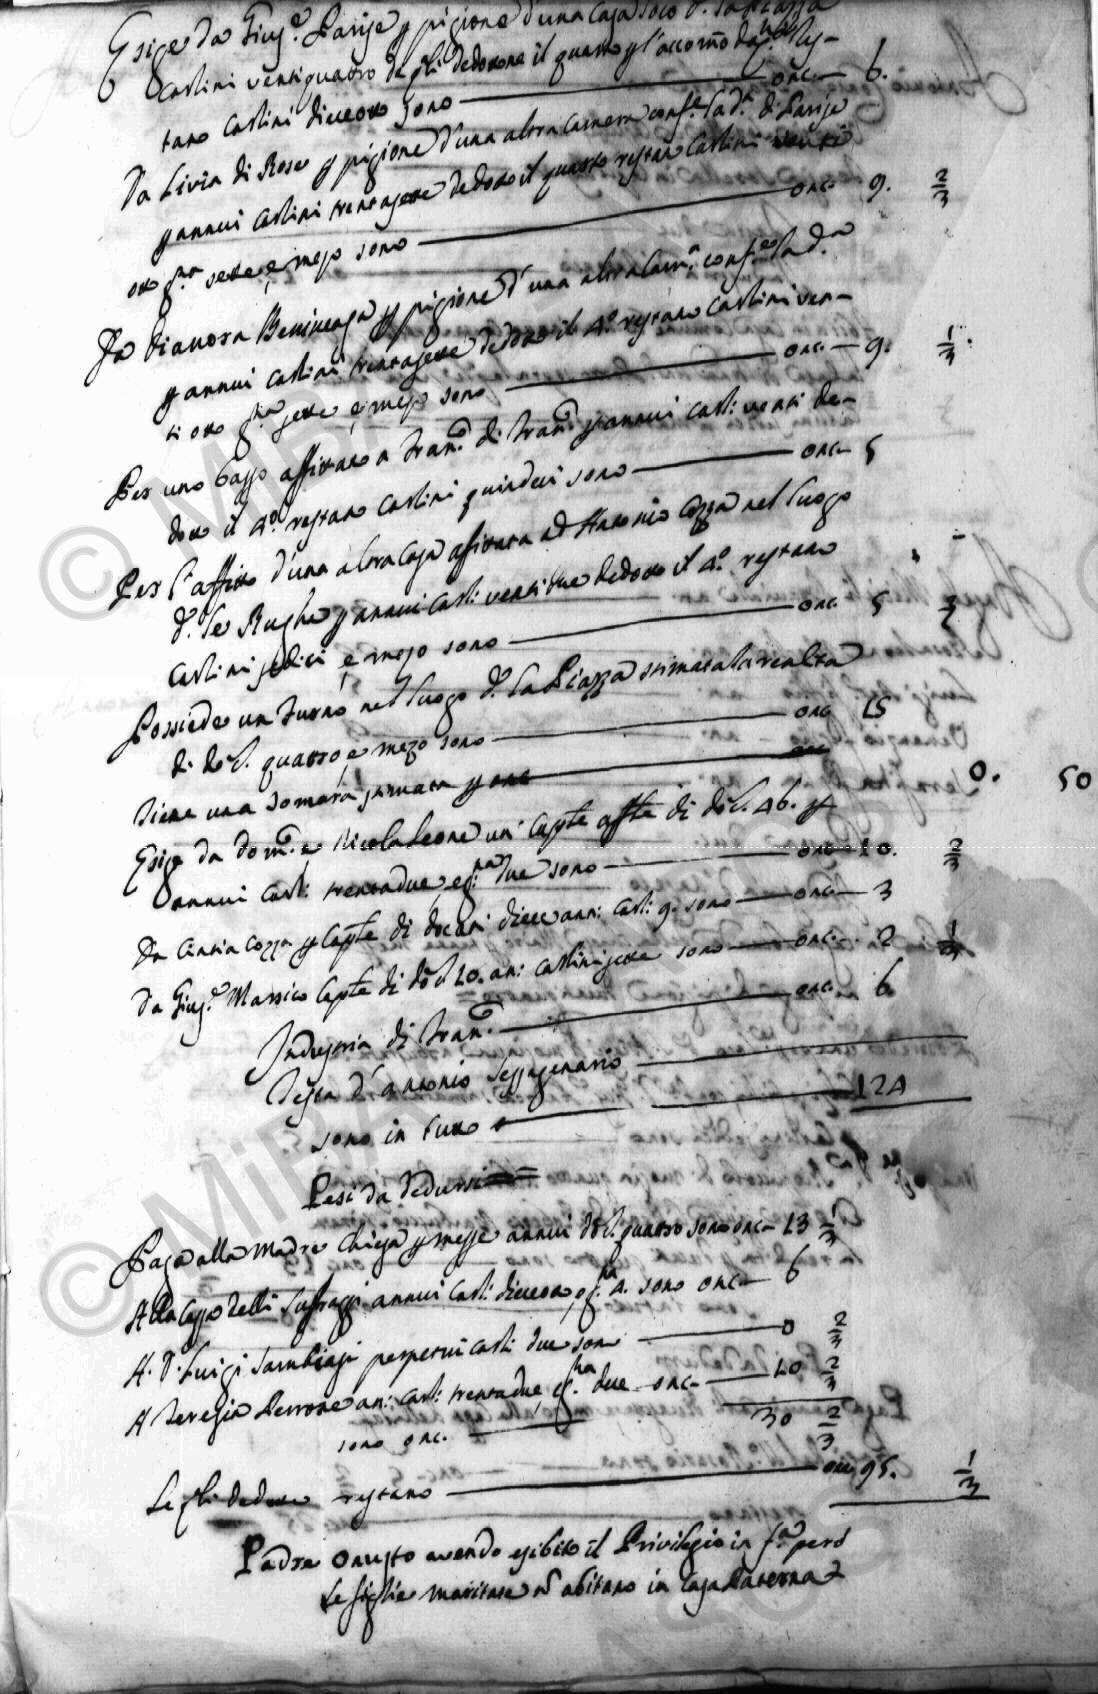 Esige da Giuse. Parise p pigione d'una Casa loco d. la Piazza
Carlini ventiquattro de qli dedottone il quarto p l'accomo da qli res-
tano Carlini dieceotto sono onc. 6.
Da Livia di Rose p pigione d'una altra Camera conf.e la d.a di Parise
p annui Carlini trentasette dedotto il quarto restan Carlini venti
otto g.na sette, e mezo sono onc. 9. 2/3
Da Dianora p pigione d'una altra Cam.a conf.e la d.a
p annui Carlini trentasette dedotto il 4.o restano Carlini ven-
ti otto g.na sette, e mezo sono onc. 9. 1/3
Per uno basso affittato a Fran.o di Fran.o p annui Carl: venti de-
dotto il 4.o restano Carlini quindeci sono onc. 5
Per l'affitto d'una altra Casa affittata ad Antonio Cozza nel luogo
d.o le Rughe p annui Carl: venti due dedotto il 4.o restano
Carlini sedici, e mezo sono onc. 5 1/2
Possiede un Furno nel luogo d.o la Piazza stimata la rendita
di doc. quattro, e mezo sono onc. 15
Tiene una Somara p onc
0. 50
Esige da Dom.o e Nicola Leone un Capte affte di doc. 46. p
annui Carl: trentadue, e g.na due sono onc 10. 2/3
Da Cintia Cozza p Capte di docati diece ann: Carl: 9. sono onc. 3
Da Giuse. Marsico Capte di doc. 10. an: Carlini sette sono onc. 2 1/3
Industria di Fran.o onc. 6
Testa d'Antonio Sessagenario
sono in tutto 124
Pesi da dedursi
Paga alla Madre Chiesa p messe annui doc. quattro sono onc. 13 1/3
Alla Cappa delli Suffraggi annui Carl: dieceotto, e g.na 4. sono onc. 6
A D. Luigi Sambiasi perpetui Carl: due sono 0 2/3
A Teresia Perrone an: Carl: trentadue, e g.na due onc. 10 2/3
sono onc. 30 2/3
Le qli dedotte restano onc 95. 1/3
Padre Onusto avendo esibito il Privilegio in f.a però
le figlie maritate n abitano in Casa Paterna
© MiBAC
© MiBAC
ASCS